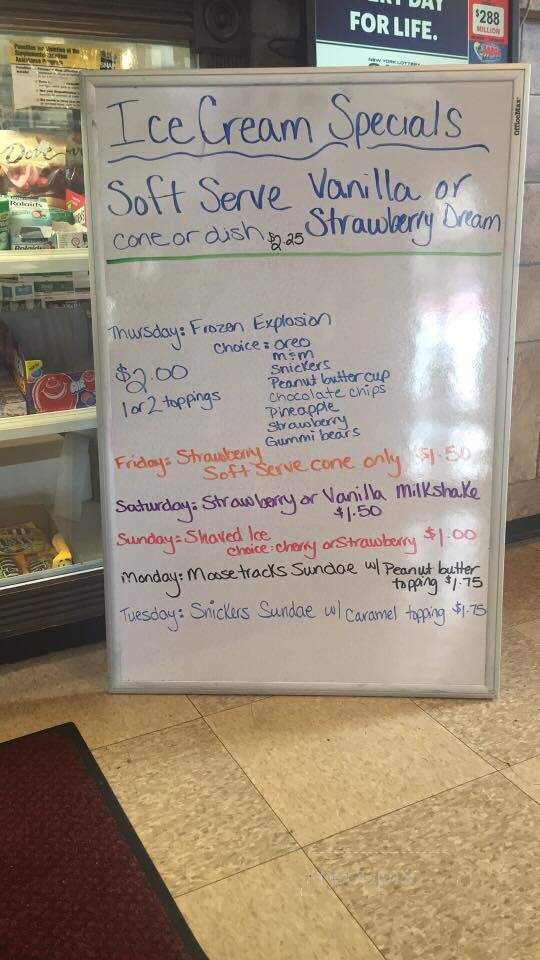 ERY DAY
FOR LIFE.
NEW YORK LOTTERY
$288
MILLION
OfficeMax
Dove
Rolaids
Rolaids
Ice Cream Specials
Soft Serve Vanilla or
cone or dish $2.25 Strawberry Dream
Thursday: Frozen Explosion
choice: oreo
m+m
$2.00
Snickers
Peanut butter cup
1 or 2 toppings
Chocolate chips
Pineapple
Strawberry
Gummi bears
Friday: Strawberry
Soft Serve cone only $1.50
Saturday: Strawberry or Vanilla Milkshake
$1.50
Sunday: Shaved Ice
choice: cherry or Strawberry $1.00
Monday: Moosetracks Sundae w/ Peanut butter
topping $1.75
Tuesday: Snickers Sundae w/ Caramel topping $1.75